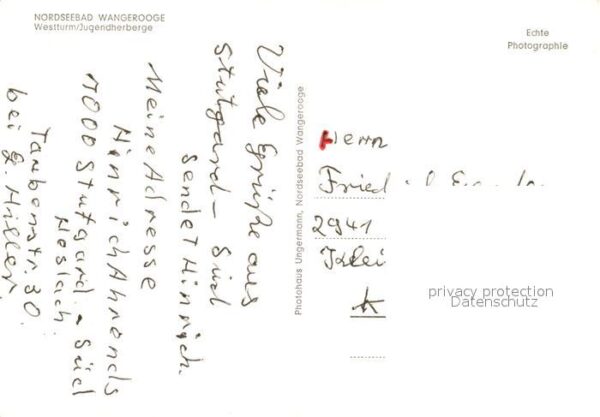 NORDSEEBAD WANGEROOGE
Westturm/Jugendherberge
Echte
Photographie
Viele Grüße aus
Stutgard - Süd
Sendet Hinrich.
Meine Adresse
Hinrich Ahrends
7000 Stutgard - Süd
Heslach
Taubenstr. 30
bei G. Hiller
Photohaus Ungermann, Nordseebad Wangerooge
Herrn
Fried
2941
privacy protection
Datenschutz